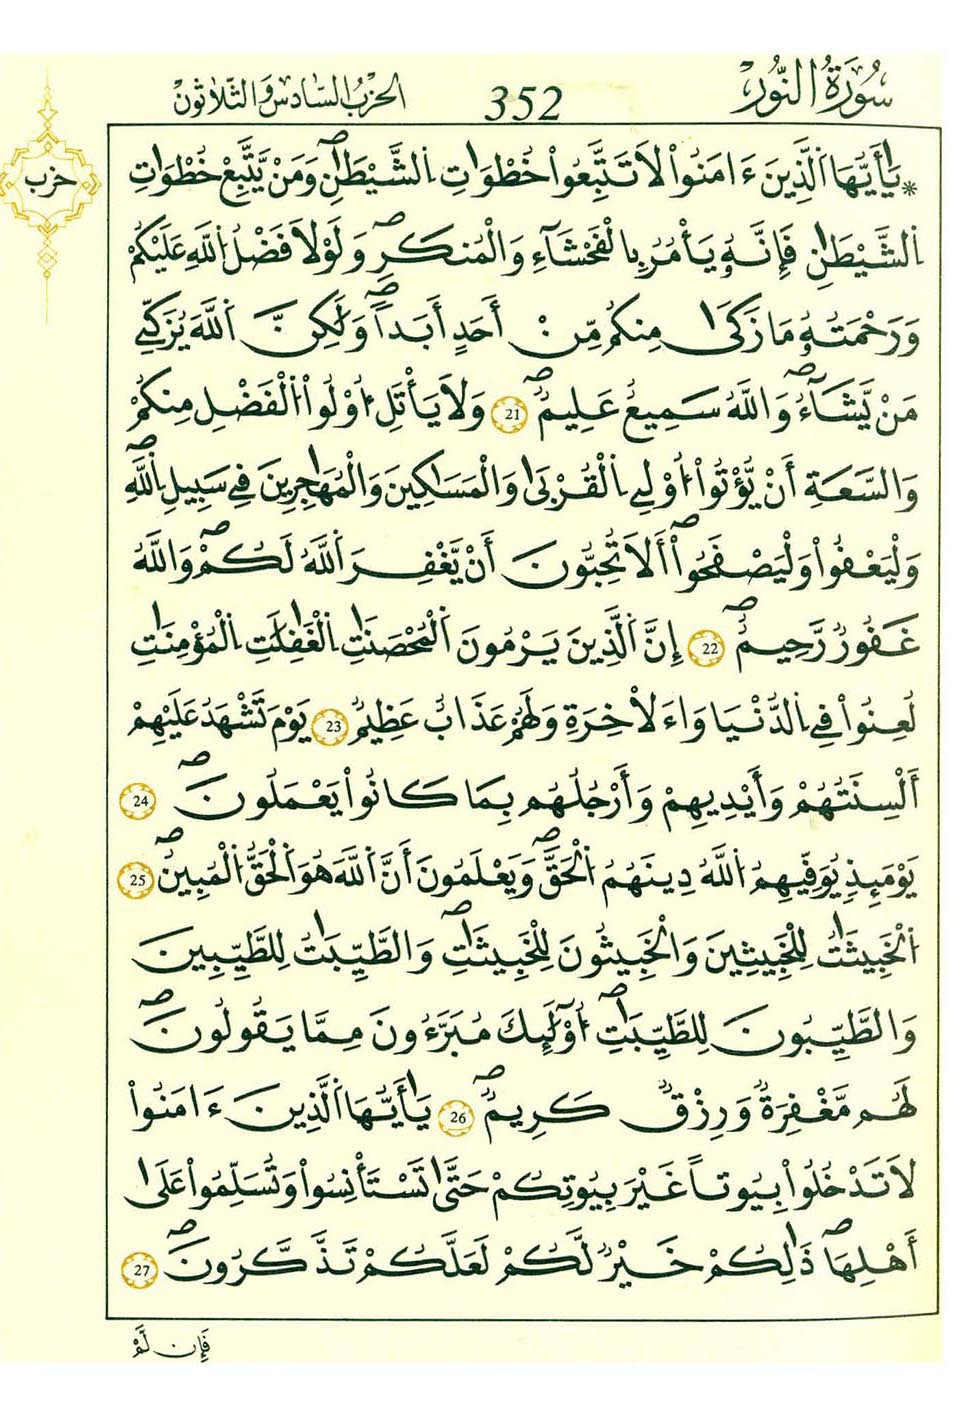 سُورَةُ النُّورِ
352
الحِزْبُ السَّادِسُ وَالثَّلَاثُونَ
حزب
* يَٰأَيُّهَا اَلذِينَ ءَامَنُواْ لَا تَتَّبِعُواْ خُطْوَٰتِ اِلشَّيْطَٰنِۖ وَمَنْ يَّتَّبِعْ خُطْوَٰتِ
اِلشَّيْطَٰنِ فَإِنَّهُۥ يَأْمُرُ بِالْفَحْشَآءِ وَالْمُنكَرِۖ وَلَوْلَا فَضْلُ اُللَّهِ عَلَيْكُمْ
وَرَحْمَتُهُۥ مَا زَكَىٰ مِنكُم مِّنْ أَحَدٍ أَبَداٗۖ وَلَٰكِنَّ اَللَّهَ يُزَكِّے
مَنْ يَّشَآءُۖ وَاللَّهُ سَمِيعٌ عَلِيمٌۖ 21 وَلَا يَأْتَلِ أُوْلُواْ اُلْفَضْلِ مِنكُمْ
وَالسَّعَةِ أَنْ يُّؤْتُواْ أُوْلِے اِلْقُرْبَىٰ وَالْمَسَٰكِينَ وَالْمُهَٰجِرِينَ فِے سَبِيلِ اِللَّهِۖ
وَلْيَعْفُواْ وَلْيَصْفَحُواْۖ أَلَا تُحِبُّونَ أَنْ يَّغْفِرَ اَللَّهُ لَكُمْۖ وَاللَّهُ
غَفُورٌ رَّحِيمٌۖ 22 إِنَّ اَلذِينَ يَرْمُونَ اَلْمُحْصَنَٰتِ اِلْغَٰفِلَٰتِ اِلْمُؤْمِنَٰتِ
لُعِنُواْ فِے اِلدُّنْيَا وَاءَلَاخِرَةِ وَلَهُمْ عَذَابٌ عَظِيمٌ 23 يَوْمَ تَشْهَدُ عَلَيْهِمْ
أَلْسِنَتُهُمْ وَأَيْدِيهِمْ وَأَرْجُلُهُم بِمَا كَانُواْ يَعْمَلُونَۖ 24
يَوْمَئِذٖ يُوَفِّيهِمُ اُللَّهُ دِينَهُمُ اُلْحَقَّۖ وَيَعْلَمُونَ أَنَّ اَللَّهَ هُوَ اَلْحَقُّ اُلْمُبِينُۖ 25
اُلْخَبِيثَٰتُ لِلْخَبِيثِينَ وَالْخَبِيثُونَ لِلْخَبِيثَٰتِۖ وَالطَّيِّبَٰتُ لِلطَّيِّبِينَ
وَالطَّيِّبُونَ لِلطَّيِّبَٰتِۖ أُوْلَٰٓئِكَ مُبَرَّءُونَ مِمَّا يَقُولُونَۖ
لَهُم مَّغْفِرَةٌ وَرِزْقٌ كَرِيمٌۖ 26 يَٰأَيُّهَا اَلذِينَ ءَامَنُواْ
لَا تَدْخُلُواْ بِيُوتاً غَيْرَ بِيُوتِكُمْ حَتَّىٰ تَسْتَأْنِسُواْ وَتُسَلِّمُواْ عَلَىٰ
أَهْلِهَاۖ ذَٰلِكُمْ خَيْرٌ لَّكُمْ لَعَلَّكُمْ تَذَّكَّرُونَۖ 27
فَإِن لَّمْ